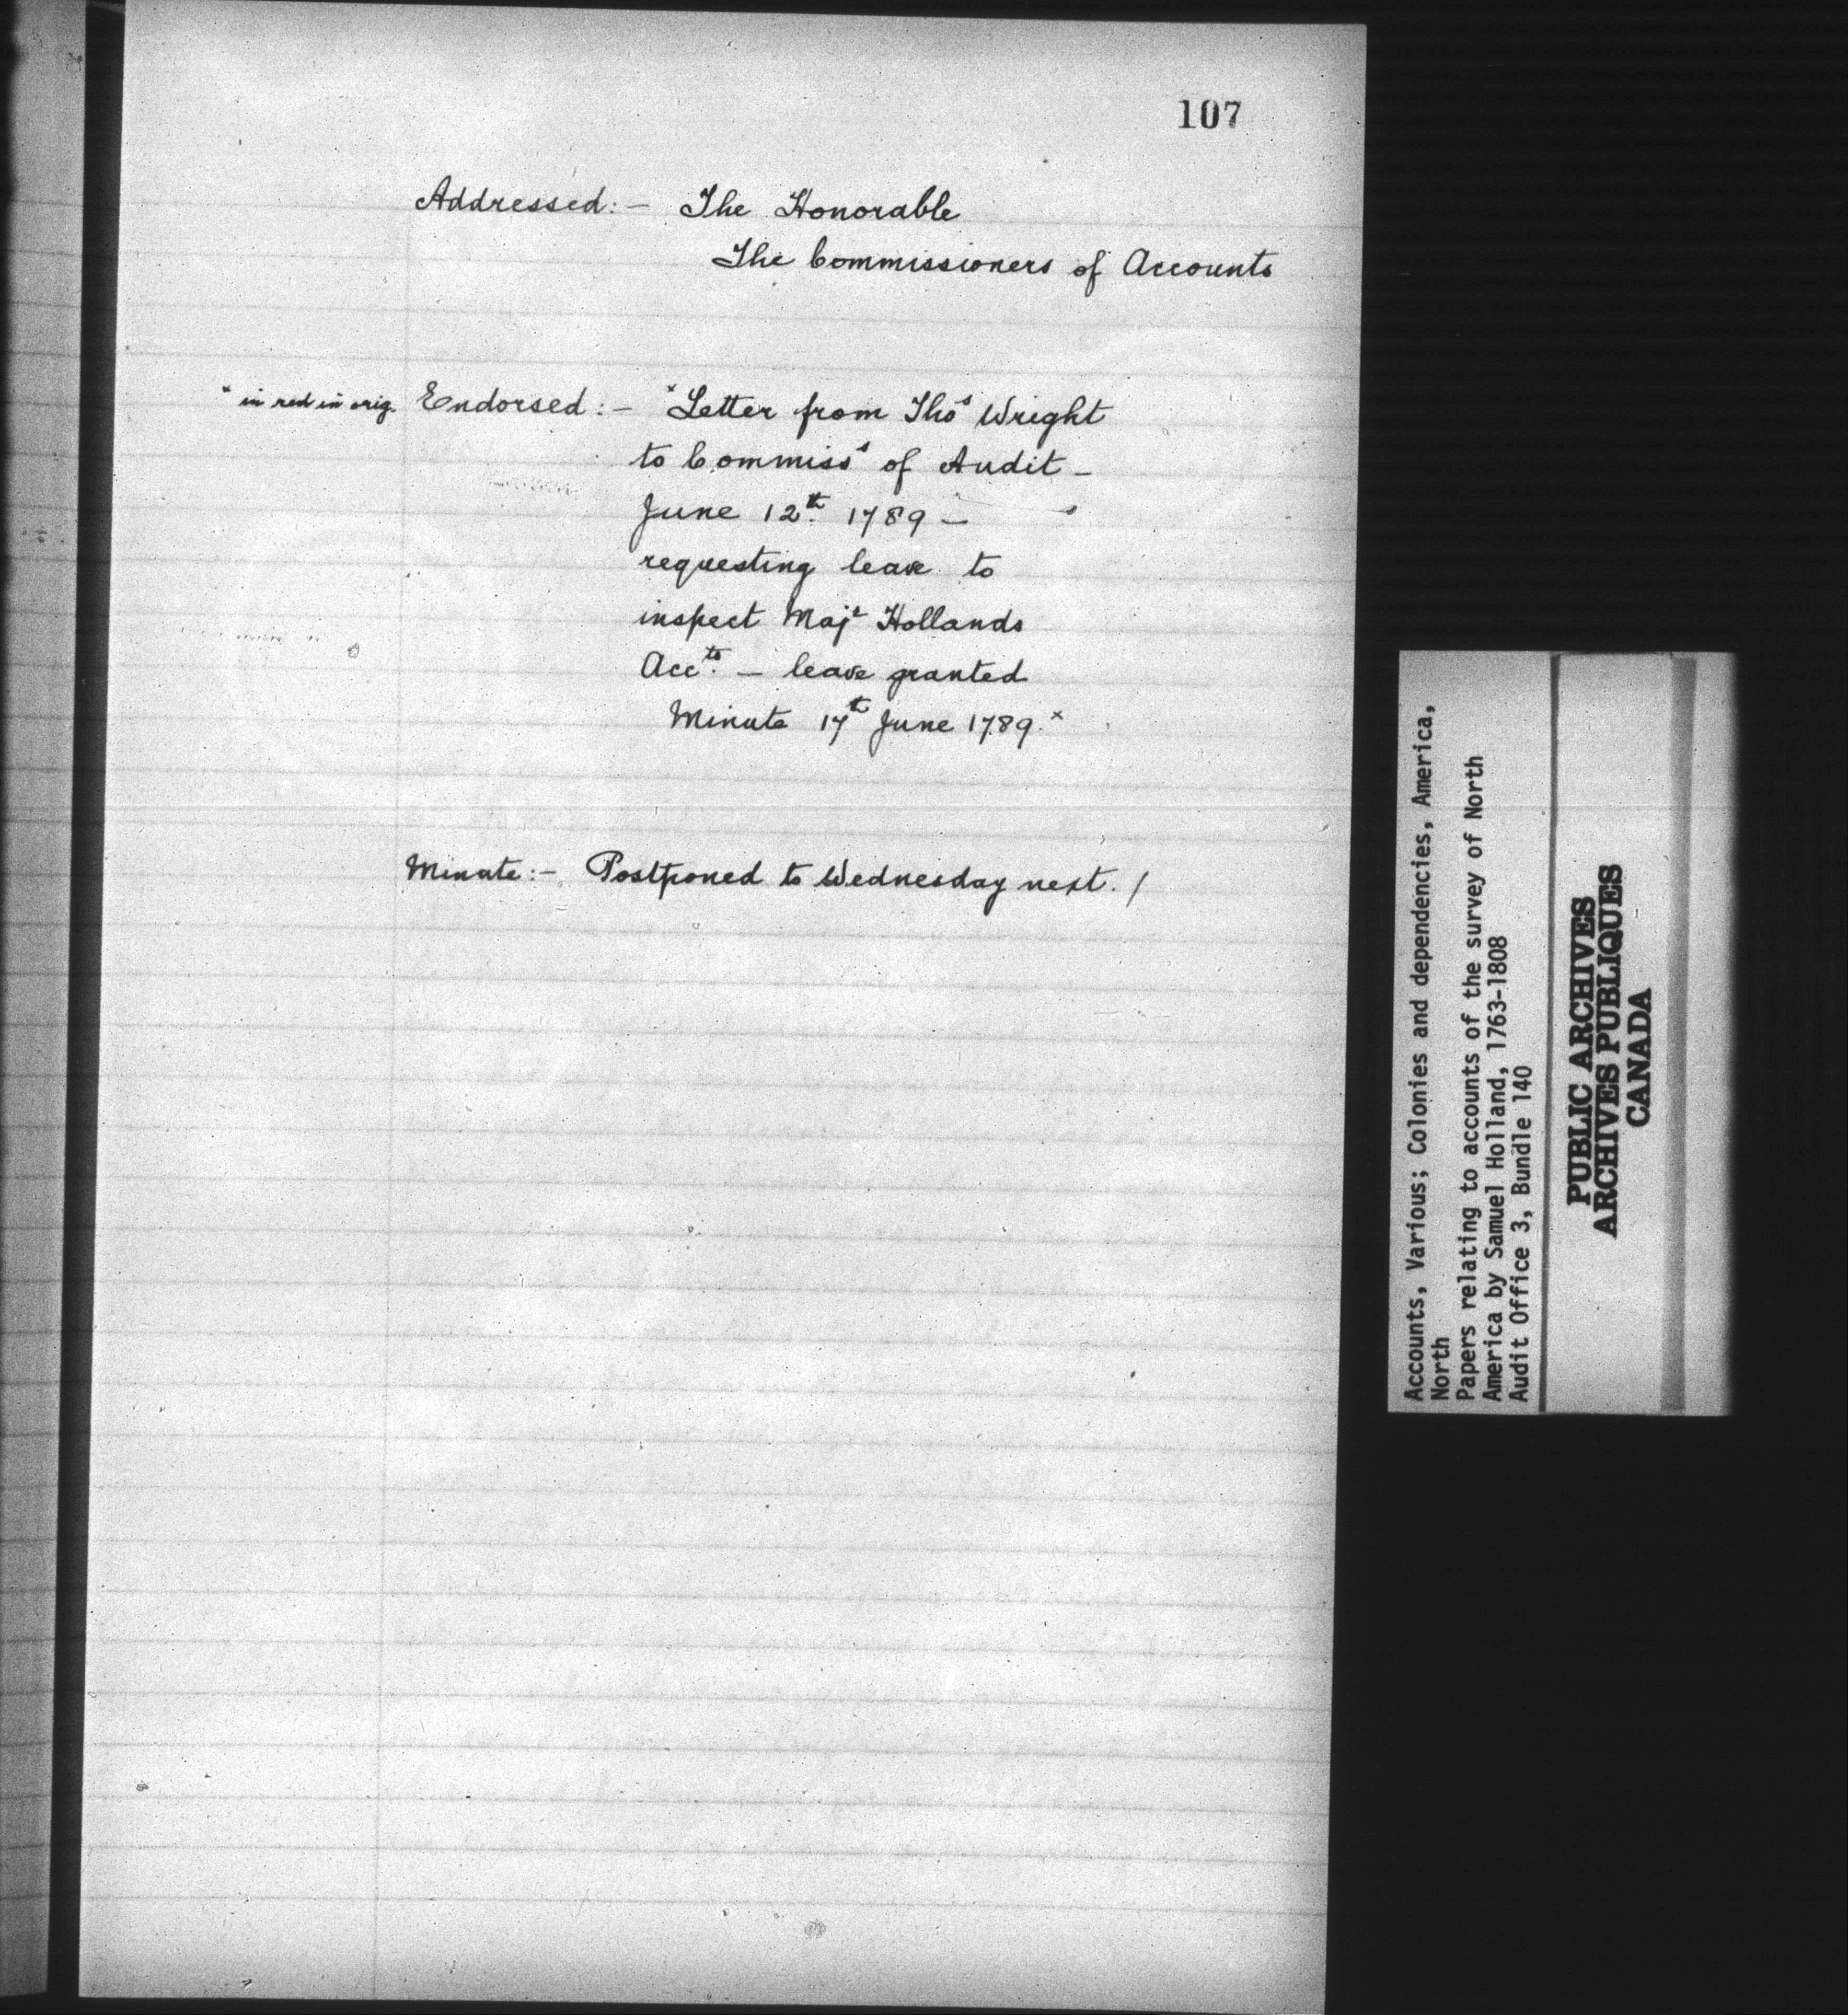 107
Addressed:- The Honorable
The Commissioners of Accounts
x in red in orig. Endorsed:- xLetter from Thos Wright
to Commisss of Audit -
June 12th. 1789 -
requesting leave to
inspect Majr Hollands
Accts. - leave granted
Minute 17th June 1789.x
Minute:- Postponed to Wednesday next. /
Accounts, Various; Colonies and dependencies, America,
North
Papers relating to accounts of the survey of North
America by Samuel Holland, 1763-1808
Audit Office 3, Bundle 140
PUBLIC ARCHIVES
ARCHIVES PUBLIQUES
CANADA